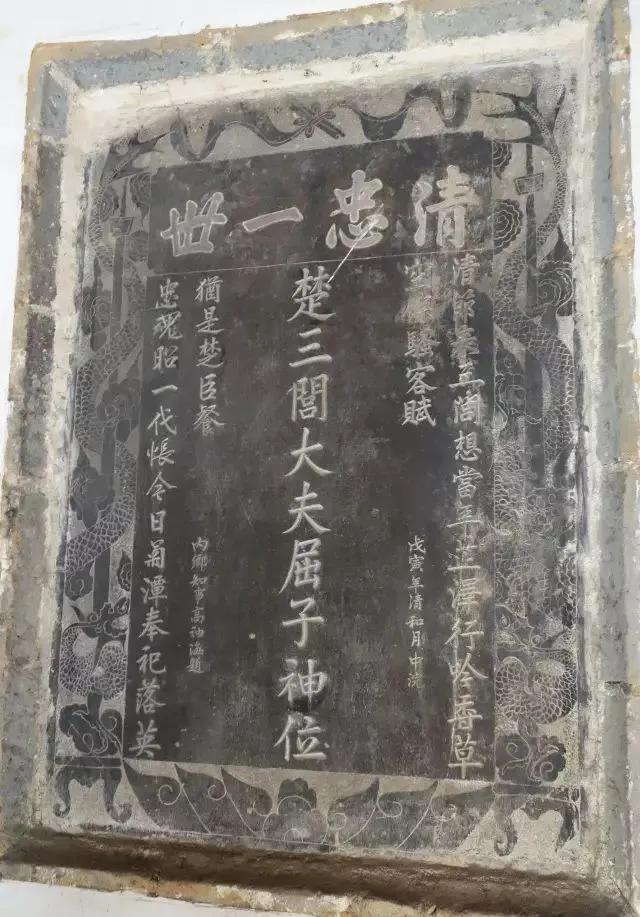 清忠一世
清節三閭想當年芷澤行吟香草
空騷客賦
戊寅年清和月中浣
楚三閭大夫屈子神位
忠魂昭一代悵今日菊潭奉祀落英
猶是楚臣餐
內鄉知事高海題